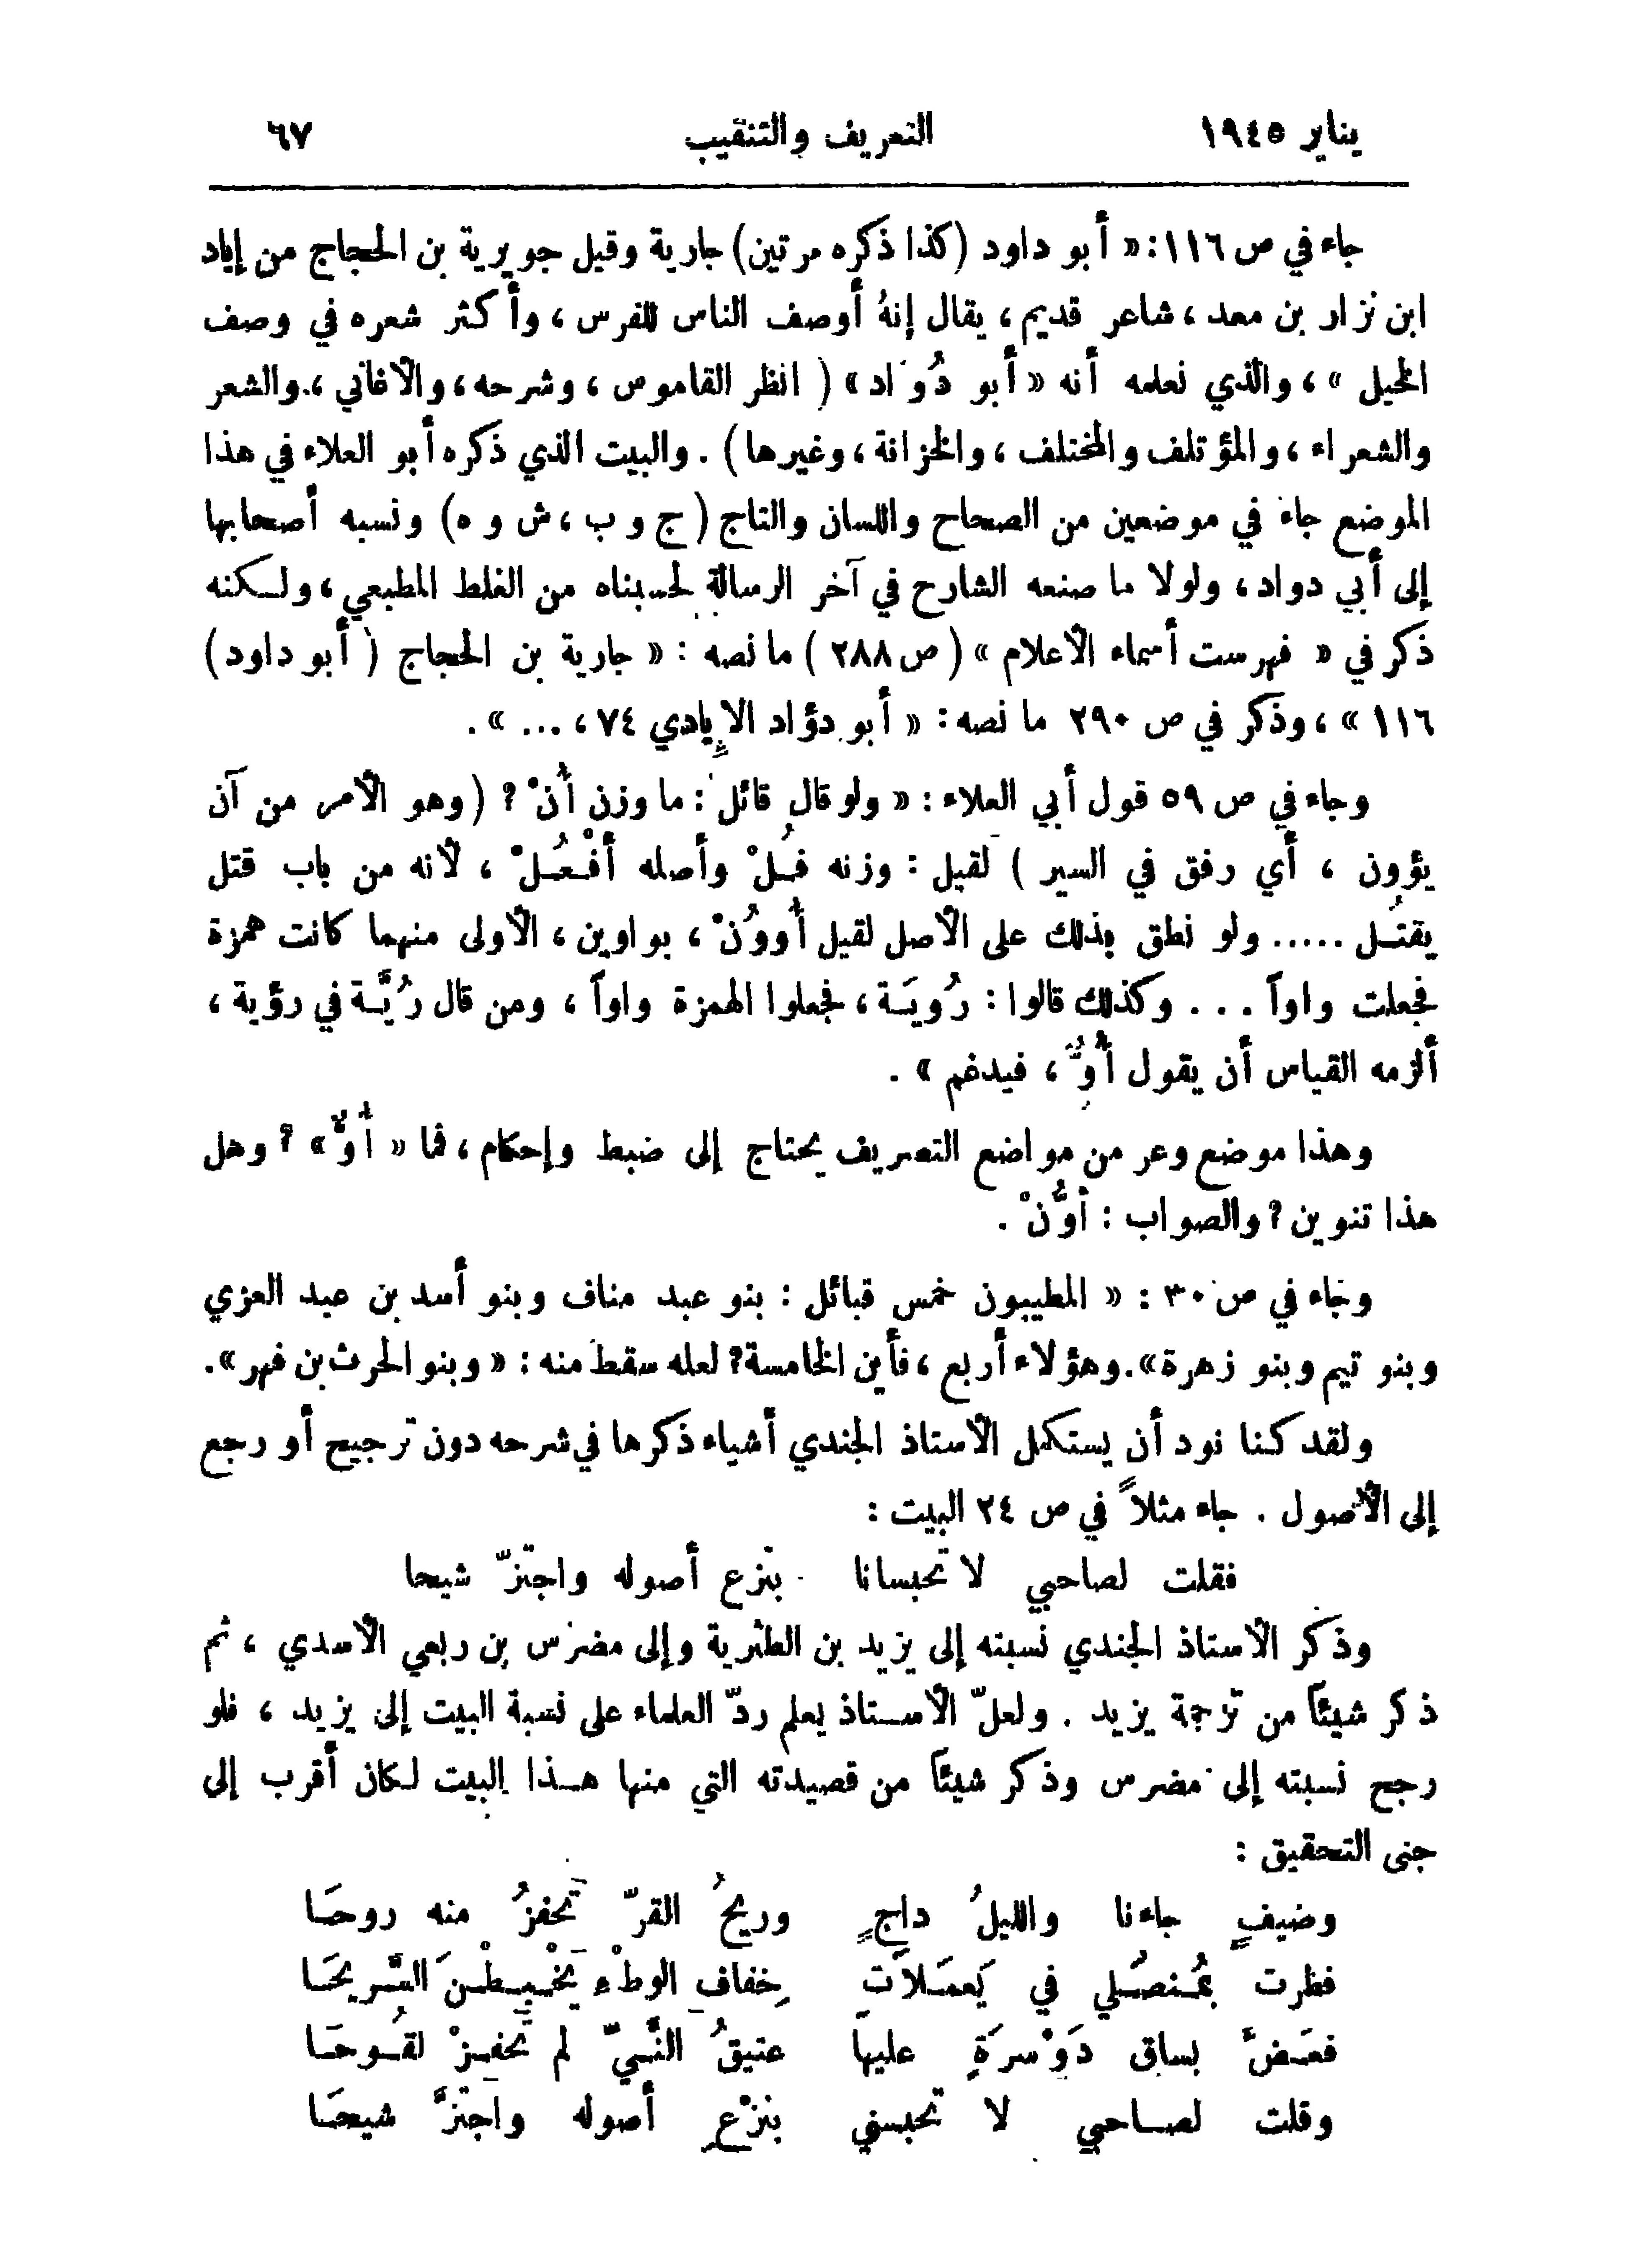 يناير ١٩٤٥ التعريف والتنقيب ٦٧
جاء في ص ١١٦: « أبو داود (كذا ذكره مرتين) جارية وقيل جويرية بن الحجاج من إياد
ابن نزار بن معد، شاعر قديم، يقال إنهُ أوصف الناس للفرس، وأكثر شعره في وصف
الخيل »، والذي نعلمه أنه « أبو دُوَاد » ( انظر القاموس، وشرحه، والأغاني، والشعر
والشعراء، والمؤتلف والمختلف، والخزانة، وغيرها). والبيت الذي ذكره أبو العلاء في هذا
الموضع جاء في موضعين من الصحاح واللسان والتاج (ج و ب، ش و ه) ونسبه أصحابها
إلى أبي دواد، ولولا ما صنعه الشارح في آخر الرسالة لحسبناه من الغلط المطبعي، ولكنه
ذكر في « فهرست أسماء الأعلام » (ص ٢٨٨) ما نصه: « جارية بن الحجاج ( أبو داود)
١١٦ »، وذكر في ص ٢٩٠ ما نصه: « أبو دؤاد الإيادي ٧٤، ... ».
وجاء في ص ٥٩ قول أبي العلاء: « ولو قال قائل: ما وزن أُنْ ? (وهو الأمر من آن
يؤون ، أي رفق في السير ) لقيل : وزنه فُلْ وأصله أفْعُلْ ، لأنه من باب قتل
يقتُل ..... ولو نطق بذلك على الأصل لقيل أُووُنْ، بواوين، الأولى منهما كانت همزة
فجعلت واواً ... وكذلك قالوا: رُويَة، فجعلوا الهمزة واواً، ومن قال رُيَّة في رؤية،
ألزمه القياس أن يقول أُوٌّ، فيدغم ».
وهذا موضع وعر من مواضع التصريف يحتاج إلى ضبط وإحكام، فما « أُوٌّ » ? وهل
هذا تنوين? والصواب: أُوُّنْ .
وجاء في ص ٣٠ : « المطيبون خمس قبائل : بنو عبد مناف وبنو أسد بن عبد العزي
وبنو تيم وبنو زهرة». وهؤلاء أربع، فأين الخامسة? لعله سقط منه : « وبنو الحرث بن فهر».
ولقد كنا نود أن يستكمل الأستاذ الجندي أشياء ذكرها في شرحه دون ترجيح أو رجع
إلى الأصول . جاء مثلاً في ص ٢٤ البيت :
فقلت لصاحبي لا تحبسانا بنزع أصوله واجتزّ شيحا
وذكر الأستاذ الجندي نسبته إلى يزيد بن الطثرية وإلى مضرس بن ربعي الأسدي ، ثم
ذكر شيئاً من ترجمة يزيد . ولعلّ الأستاذ يعلم ردّ العلماء على نسبة البيت إلى يزيد ، فلو
رجح نسبته إلى مضرس وذكر شيئاً من قصيدته التي منها هذا البيت لكان أقرب إلى
جنى التحقيق :
وضيفٍ جاءنا والليلُ داجٍ وريحُ القرّ تَحفزُ منه روحَا
فطرت بمُنصُلي في يَعمَلاَتٍ خِفافِ الوطْءِ يَخْبِطْنَ السَّريحَا
فعَضَّ بساق دَوْسرَةٍ عليها عتيقُ النَّيّ لم تَحفِزْ لقُوحَا
وقلت لصاحبي لا تحبسني بنزْعِ أصوله واجتَزَّ شيحَا